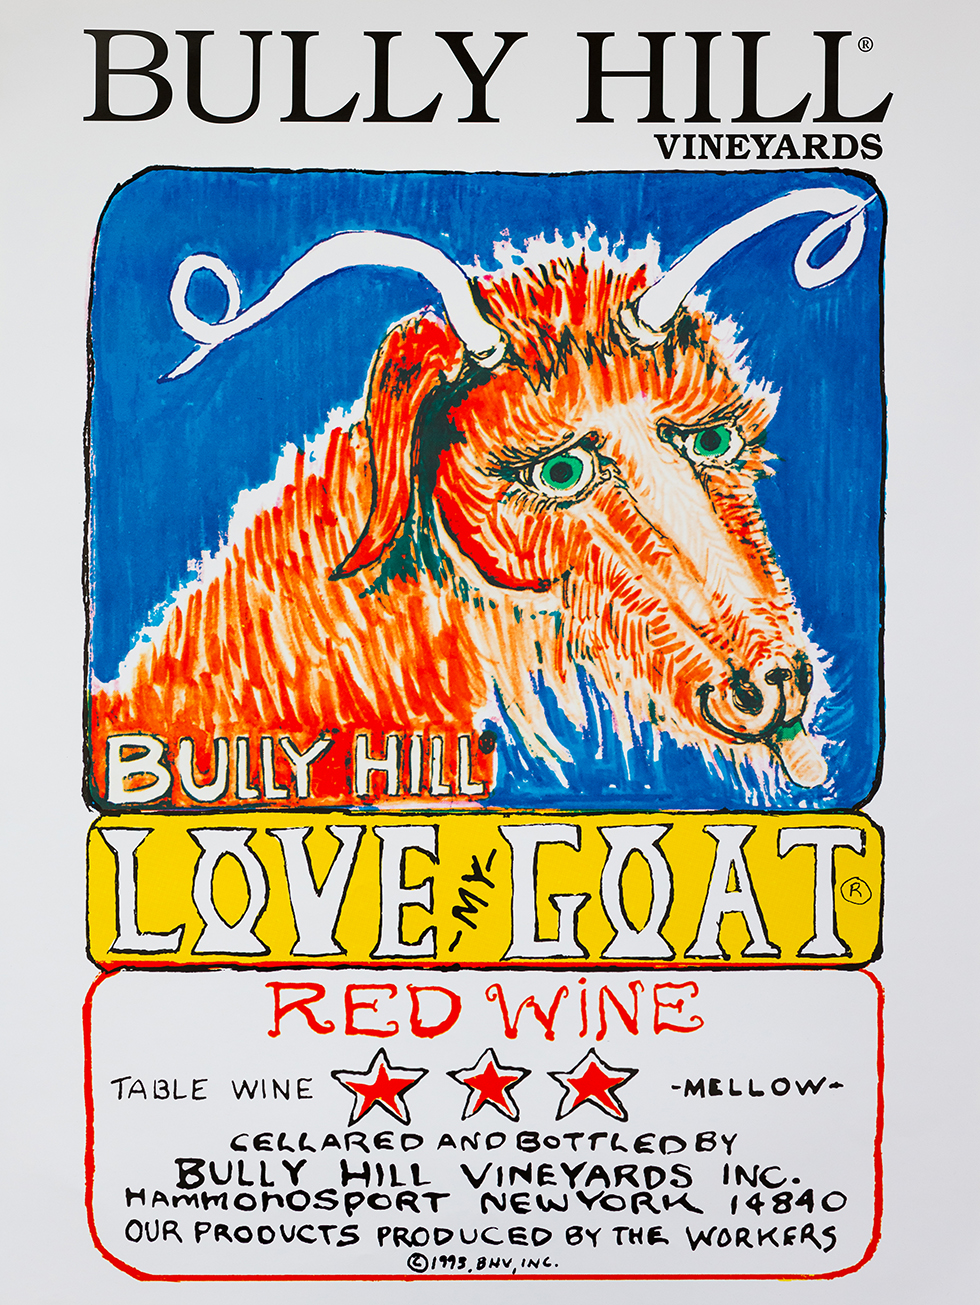 BULLY HILL®
VINEYARDS
BULLY HILL®
LOVE -MY- GOAT ®
RED WiNE
TABLE WINE -MELLOW-
CELLARED AND BOTTLED BY
BULLY HILL VINEYARDS INC.
HAMMONDSPORT NEW YORK 14840
OUR PRODUCTS PRODUCED BY THE WORKERS
©1993, BHV, INC.